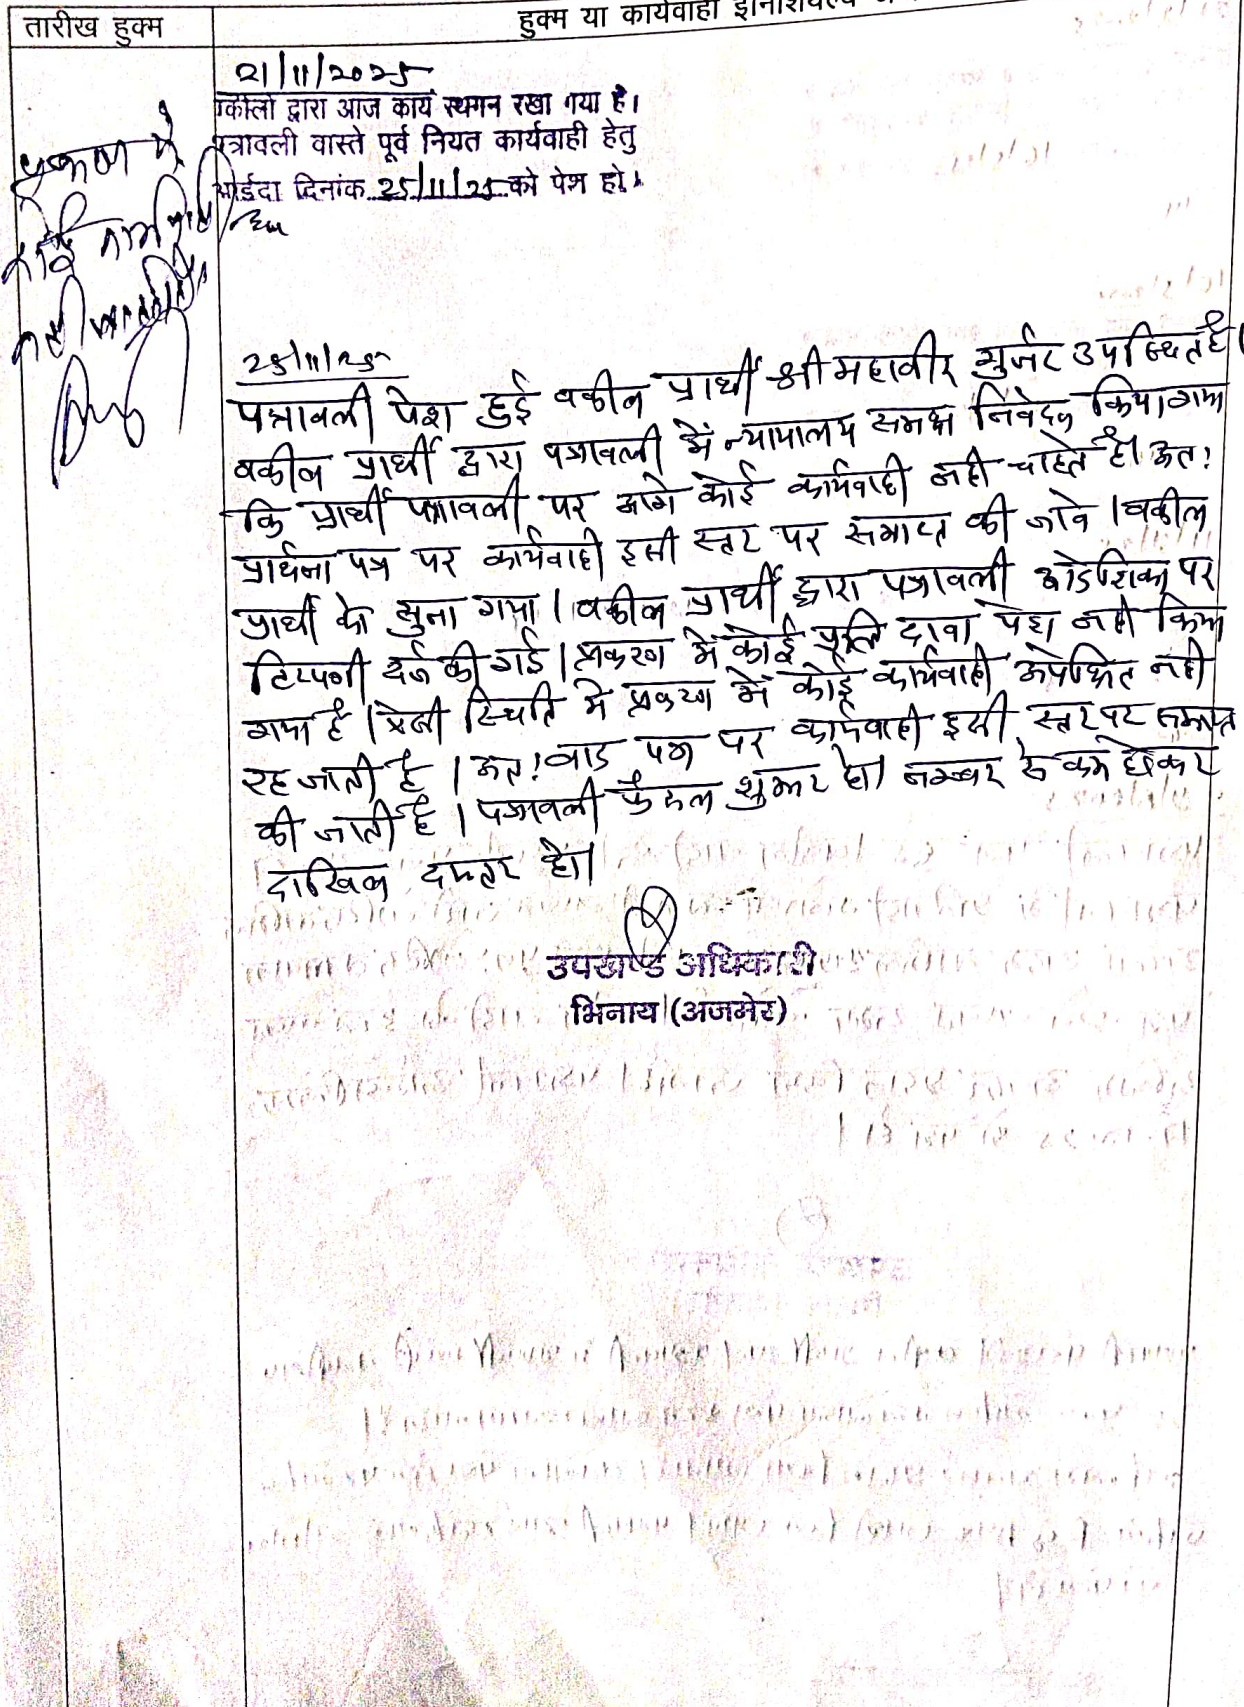 तारीख हुक्म
हुक्म या कार्यवाही
21/11/2025
वकीलो द्वारा आज कार्य स्थगन रखा गया है।
पत्रावली वास्ते पूर्व नियत कार्यवाही हेतु
आईदा दिनांक 25/11/25 को पेश हो।
प्रकरण में
कोई कार्यवाही
नहीं चाहते है।
25/11/25
पत्रावली पेश हुई वकील प्रार्थी श्री महावीर गुर्जर उपस्थित है।
वकील प्रार्थी द्वारा पत्रावली में न्यायालय समक्ष निवेदन किया गया
कि प्रार्थी पत्रावली पर आगे कोई कार्यवाही नही चाहते है। अत:
प्रार्थना पत्र पर कार्यवाही इसी स्तर पर समाप्त की जावे। वकील
प्रार्थी को सुना गया। वकील प्रार्थी द्वारा पत्रावली पर
टिप्पणी दर्ज की गई। प्रकरण में कोई प्रति दावा पेश नही किया
गया है। ऐसी स्थिति में प्रकरण में कोई कार्यवाही अपेक्षित नही
रह जाती है। अत: वाद पत्र पर कार्यवाही इसी स्तर पर समाप्त
की जाती है। पत्रावली फैसल शुमार हो। नम्बर से कम होकर
दाखिल दफ्तर हो।
उपखण्ड अधिकारी
भिनाय (अजमेर)